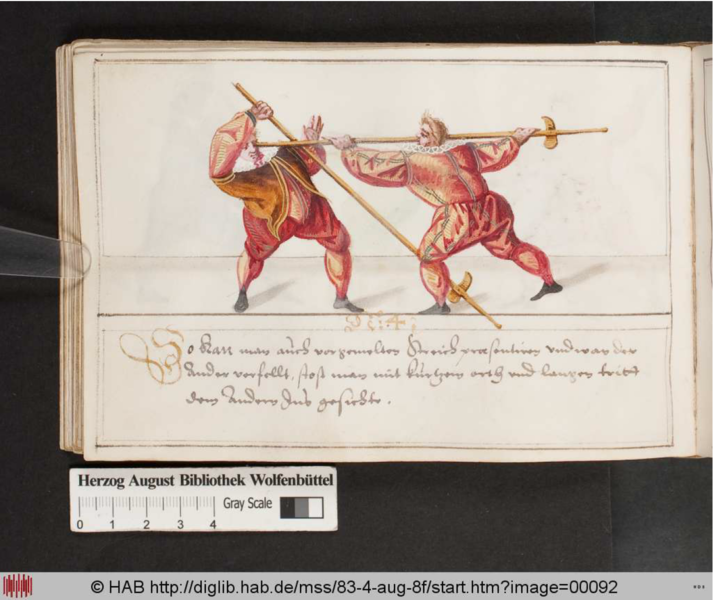 N: 4:
So kan man auch vorgemelten Streich praesentiren und wan der
Ander verfelt, stost man mit kurtzem orth und langen tritt
dem Andern Ins gesichte.
Herzog August Bibliothek Wolfenbüttel
Gray Scale
0 1 2 3 4
© HAB http://diglib.hab.de/mss/83-4-aug-8f/start.htm?image=00092